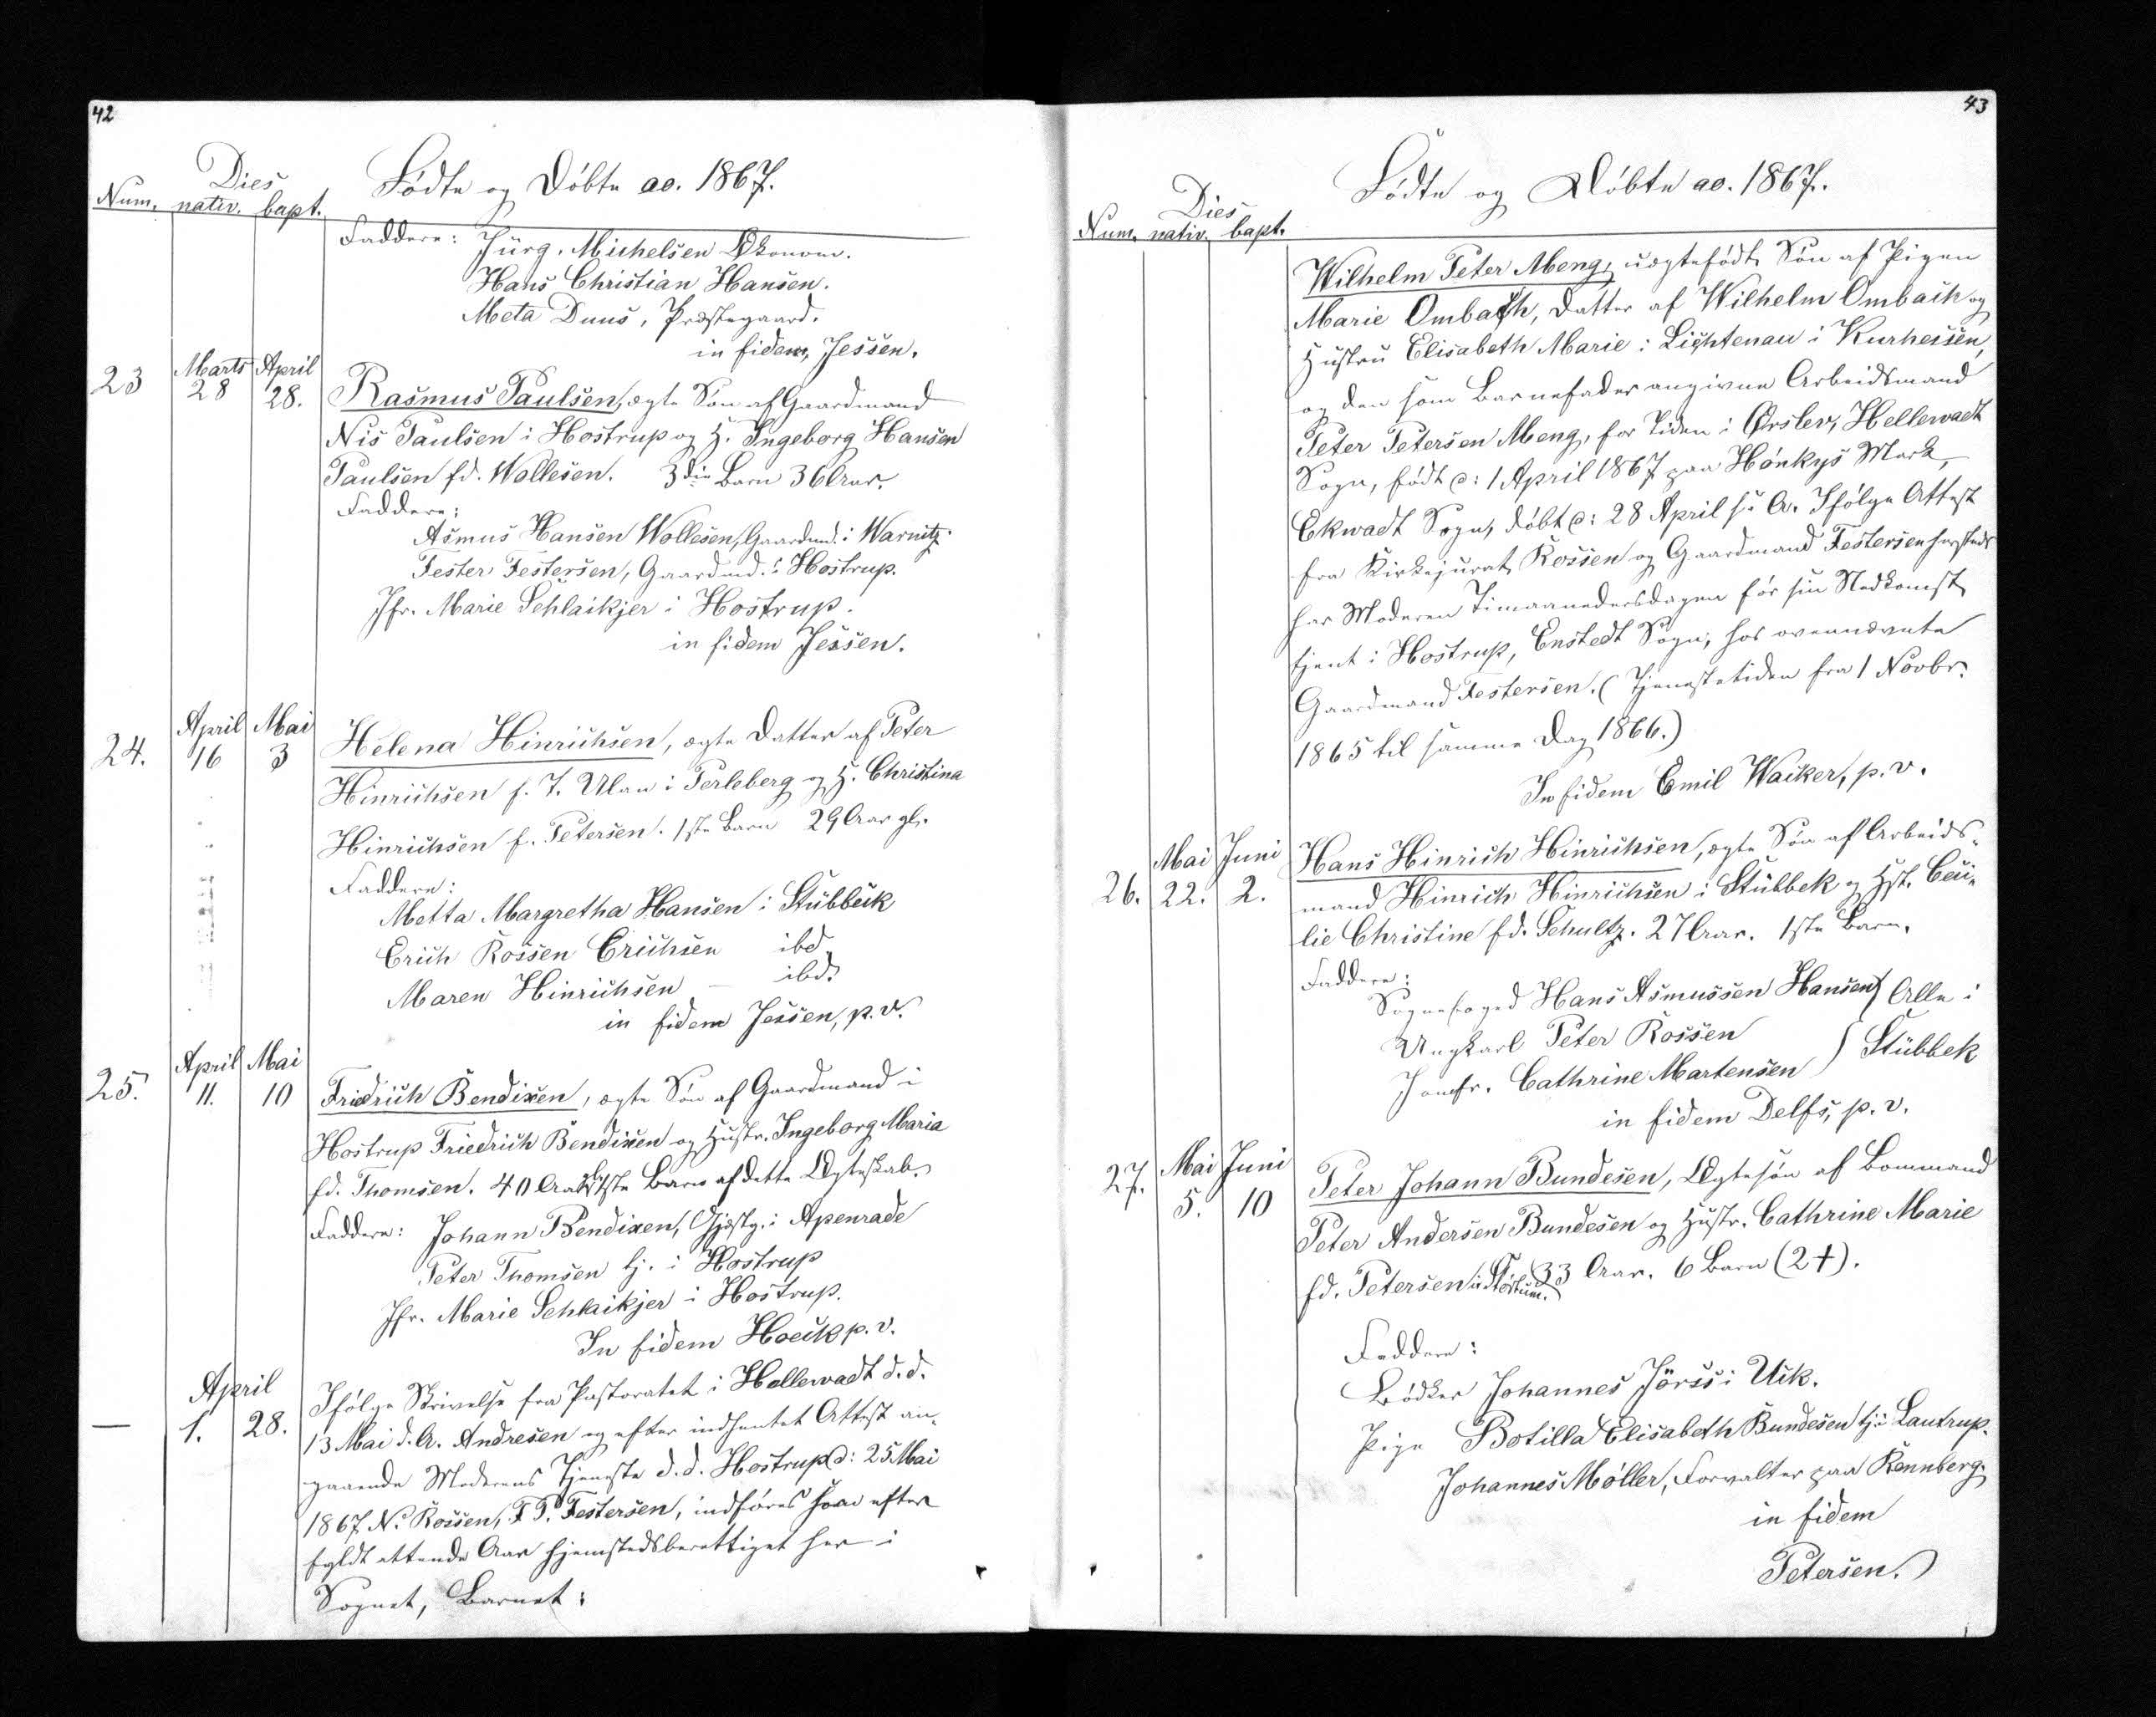 42
Dies
Num. nativ. bapt.
Födte og Döbte ao. 1867.
Faddere: Jürg. Michelsen Økonom.
Hans Christian Hansen.
Meta Duus, Præstegaard.
in fidem, Jessen.
23 Marts 28 April 28.
Rasmus Paulsen, ægte Sön af Gaardmand
Nis Paulsen i Hostrup og H. Ingeborg Hansen
Paulsen fd. Wollesen. 3die Barn 36 Aar.
Faddere:
Asmus Hansen Wollesen, Gaardmd. i Warnitz.
Fester Festersen, Gaardmd. i Hostrup.
Jfr. Marie Schlaikjer i Hostrup.
in fidem Jessen.
24. April 16 Mai 3
Helena Hinrichsen, ægte Datter af Peter
Hinrichsen f. T. Ulan i Perleberg og H. Christina
Hinrichsen f. Petersen. 1ste Barn 29 Aar gl.
Faddere:
Metta Margretha Hansen i Stübbeck
Erich Rossen Erichsen ibd.
Maren Hinrichsen — ibd.
in fidem Jessen, p. v.
25. April 11. Mai 10
Friedrich Bendixen, ægte Sön af Gaardmand i
Hostrup Friedrich Bendixen og Hustr. Ingeborg Maria
fd. Thomsen. 40 Aar 1ste Barn af dette Ægteskab.
Faddere: Johann Bendixen, Gjæstg. i Apenrade
Peter Thomsen tj. i Hostrup
Jfr. Marie Schlaikjer i Hostrup.
In fidem Hoeck p. v.
— April 1. 28.
Ifölge Skrivelse fra Pastoratet i Hellewadt d. d.
13 Mai d. A. Andresen og efter indhentet Attest an-
gaaende Moderens Tjeneste d. d. Hostrup d: 25 Mai
1867 N. Rossen, F. P. Festersen, indföres som efter
fyldt attende Aar hjemstedsberettiget her i
Sognet, Barnet:
43
Dies
Num. nativ. bapt.
Födte og Döbte ao. 1867.
Wilhelm Peter Meng, uægtefödt Sön af Pigen
Marie Ombach, Datter af Wilhelm Ombach og
Hustru Elisabeth Marie i Lichtenau i Kurhessen,
og den som Barnefader angivne Arbeidsmand
Peter Petersen Meng, for Tiden i Ørslev, Hellewadt
Sogn, födt d: 1 April 1867 paa Hönkys Mark,
Ekwadt Sogn, döbt d: 28 April s. A. Ifölge Attest
fra Kirkejurat Rossen og Gaardmand Festersen sammesteds
har Moderen Timaanedersdagen för sin Nedkomst
tjent i Hostrup, Enstedt Sogn, hos ovennævnte
Gaardmand Festersen. (Tjenestetiden fra 1 Novbr.
1865 til samme Dag 1866.)
In fidem Emil Wacker, p. v.
26. Mai 22. Juni 2.
Hans Hinrich Hinrichsen, ægte Sön af Arbeids-
mand Hinrich Hinrichsen i Stübbek og Hst. Cäci-
lie Christine fd. Schultz. 27 Aar. 1ste Barn.
Faddere:
Sognefoged Hans Asmussen Hansen } Alle i
Ungkarl Peter Rossen
Jomfr. Cathrine Martensen } Stübbek
in fidem Delfs, p. v.
27. Mai 5. Juni 10
Peter Johann Bundesen, Ægtesön af Bommand
Peter Andersen Bundesen og Hustr. Cathrine Marie
fd. Petersen 33 Aar. 6 Barn (2 †).
Faddere:
Bödker Johannes Jörss i Uik.
Pige Botilla Elisabeth Bundesen tj. i Lautrup.
Johannes Möller, Forvalter paa Rennberg.
in fidem
Petersen.